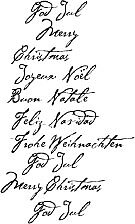 God Jul
Merry
Christmas
Joyeux Noël
Buon Natale
Feliz Navidad
Frohe Weihnachten
God Jul
Merry Christmas
God Jul